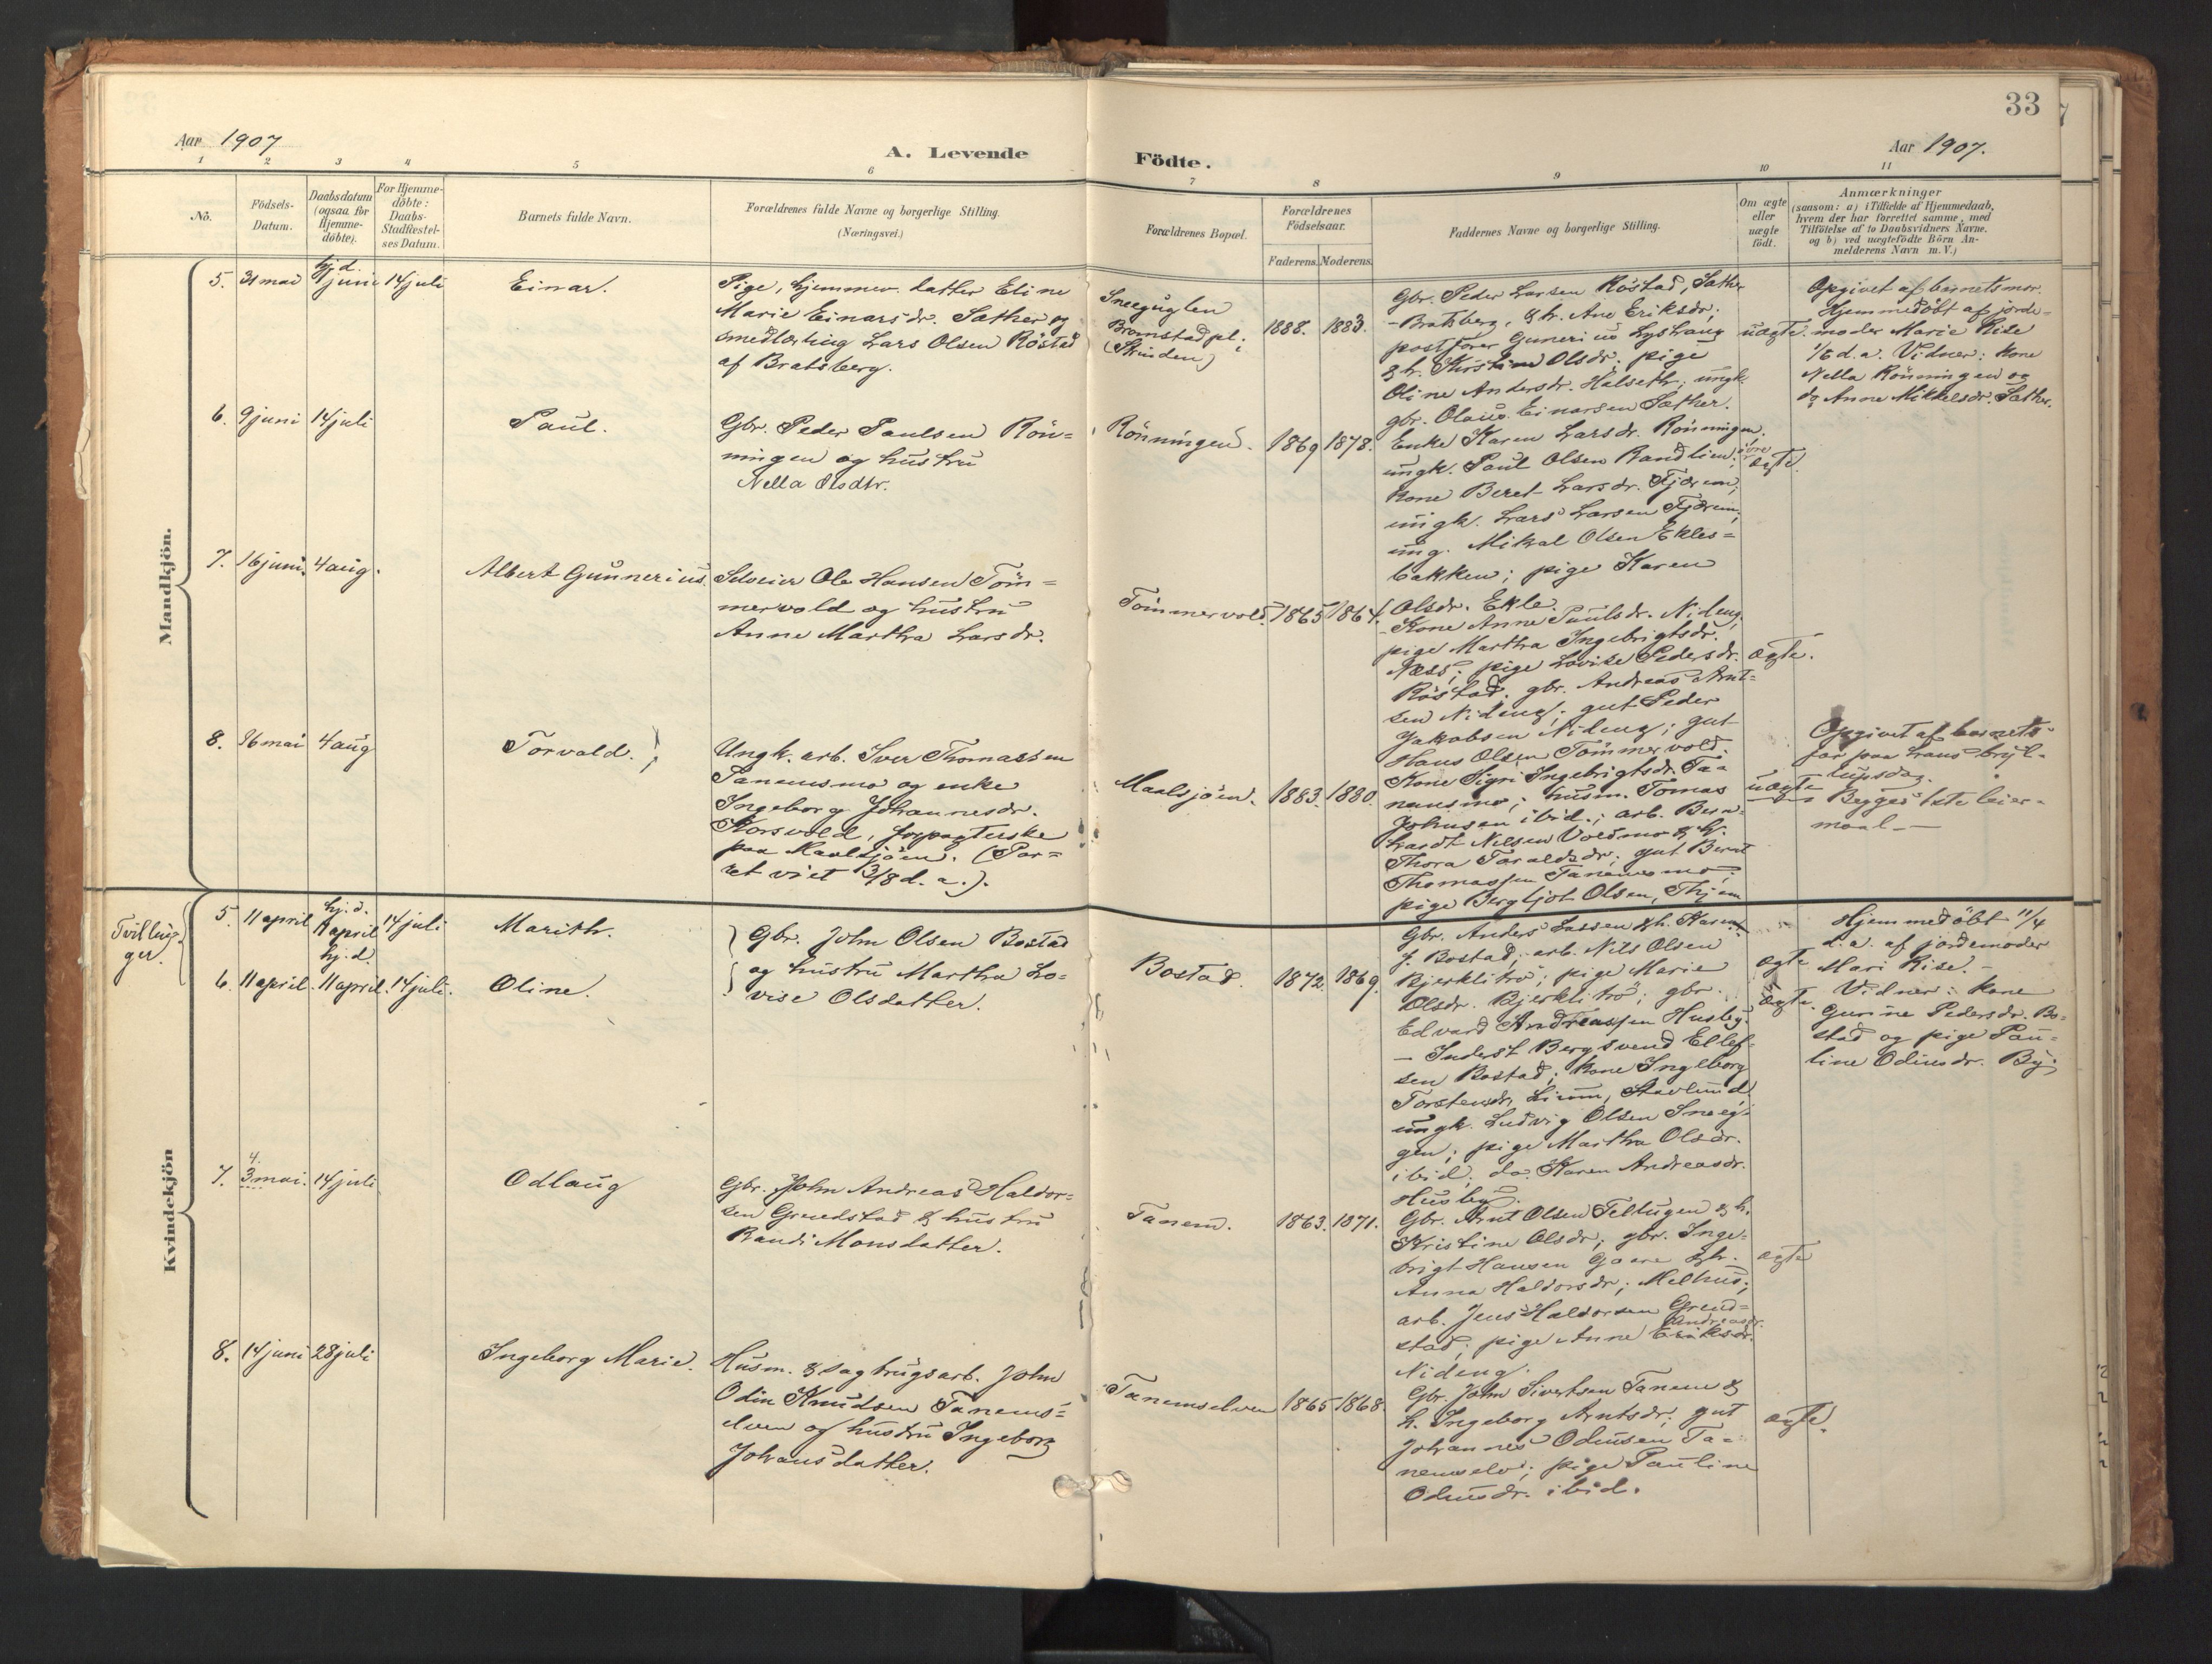 33
Aar 1907
A. Levende
Födte.
Aar 1907.
1 2 3 4 5 6 7 8 9 10 11
No.
Födsels-
Datum.
Daabsdatum
(ogsaa for
Hjemme-
döbte).
For Hjemme-
döbte:
Daabs-
Stadfæstel-
ses Datum.
Barnets fulde Navn.
Forældrenes fulde Navne og borgerlige Stilling.
(Næringsvei.)
Forældrenes Bopæl.
Forældrenes
Födselsaar.
Faderens. Moderens.
Faddernes Navne og borgerlige Stilling.
Om ægte
eller
uægte
födt.
Anmærkninger
(saasom: a) i Tilfælde af Hjemmedaab,
hvem der har forrettet samme, med
Tilföielse af to Daabsvidners Navne.
og b) ved uægtefödte Börn An-
melderens Navn m.V.)
Mandkjön.
5. 31 mai
hj.d.
juni 14 juli
Einar.
Pige, hjemmev. datter Eline
Marie Einarsdr. Sæther og
smedlærling Lars Olsen Röstad
af Bratsberg.
Bromstad pl.
1888. 1883.
Gbr. Peder Larsen Röstad, Sæther
- Bratsberg, & h. Ane Eriksdr;
postförer Gunerius
& h. Kirstine Olsdr; pige
Oline Andersdr. Halseth; ungk.
gbr. Olaus Einarsen Sæther.
uægte.
Opgivet af barnets mor.
Hjemmedöbt af jorde-
moder Marie Rise
d.a. Vidner: kone
Nella Rönningen og
do Anne Mikkelsdr. Sæther.
6. 9 juni 14 juli
Paul.
Gbr. Peder Paulsen Rön-
ningen og hustru
Nella Olsdtr.
Rönningen.
1869 1878.
Enke Karen Larsdr. Rönningen,
ungk. Paul Olsen Randlien;
kone Beret Larsdr. Fjærem;
ungk. Lars Larsen Fjærem;
ung. Mikal Olsen Ekles-
bakken; pige Karen
Olsdr. Ekle.
ægte.
7. 16 juni. 4 aug.
Albert Gunnerius.
Selveier Ole Hansen Töm-
mervold og hustru
Anne Martha Larsdr.
Tömmervold.
1865 1864.
Kone Anne Paulsdr. Nideng;
pige Martha Ingebrigtsdr.
Næss; pige Lovise Pedersdr.
Röstad; gbr. Andreas Arnt-
sen Nideng; gut Peder
Jakobsen Nideng; gut
Hans Olsen Tömmervold.
ægte.
8. 26 mai 4 aug
Torvald.
Ungk. arb. Iver Thomassen
Tanemsmo og enke
Ingeborg Johannesdr.
Korsvold, forpagterske
paa Maalsjöen. (Par-
ret viet 3/8 d.a.).
Maalsjöen.
1883. 1880.
Kone Sigri Ingebrigtsdr. Ta-
nemsmo; husm. Tomas
Johnsen ibid.; arb. Bern-
hardt Nilsen Voldmo & h.
Thora Haraldsdr; gut Bernt
Thomassen Tanemsmo;
pige Bergljot Olsen, Thjem
uægte
Opgivet af barnets
far paa hans bryl-
lupsdag.
Begges 1ste leier-
maal —
Kvindekjön
Tvillin-
ger.
5. 11 april
hj.d.
11 april 14 juli
Marith.
6. 11 april.
hj.d.
11 april. 14 juli.
Oline.
Gbr. John Olsen Bostad
og hustru Martha Lo-
vise Olsdatter.
Bostad.
1872. 1869.
Gbr. Anders Lassen & h. Karen
J. Bostad; arb. Nils Olsen
Bjerklitrö; pige Marie
Olsdr. Bjerklitrö; gbr.
Edvard Andreassen Husby.
— Inderst Bergsvend Ellef-
sen Bostad; kone Ingeborg
Torstensdr.
ungk. Ludvig Olsen
gen; pige Martha Olsdr.
ibid; do Karen Andreasdr.
Husby.
ægte
ægte.
Hjemmedöbt 11/4
d.a. af jordemoder
Mari Rise. —
Vidner: kone
Gurine Pedersdr. Bo-
stad og pige Pau-
line Odinsdr. By.
7.
4.
3 mai. 14 juli
Odlaug
Gbr. John Andreas Haldor-
sen Grendstad & hustru
Randi Monsdatter.
Tanem.
1863. 1871.
Gbr. Arnt Olsen Teltugen & h.
Kristine Olsdr; gbr. Inge-
brigt Hansen Gaare & h.
Anna Haldorsdr; Melhus;
arb. Jens Haldorsen Grend-
Andreasdr.
stad; pige Anne Eriksdr.
Nideng.
ægte
8. 14 juni 28 juli
Ingeborg Marie.
Husm. & sagbrugsarb. John
Odin Knudsen Tanems-
elven og hustru Ingeborg
Johansdatter.
Tanemselven
1865 1868.
Gbr. John Sivertsen Tanem &
h. Ingeborg Arntsdr; gut
Johannes Odinsen Ta-
nemselv; pige Pauline
Odinsdr. ibid.
ægte.